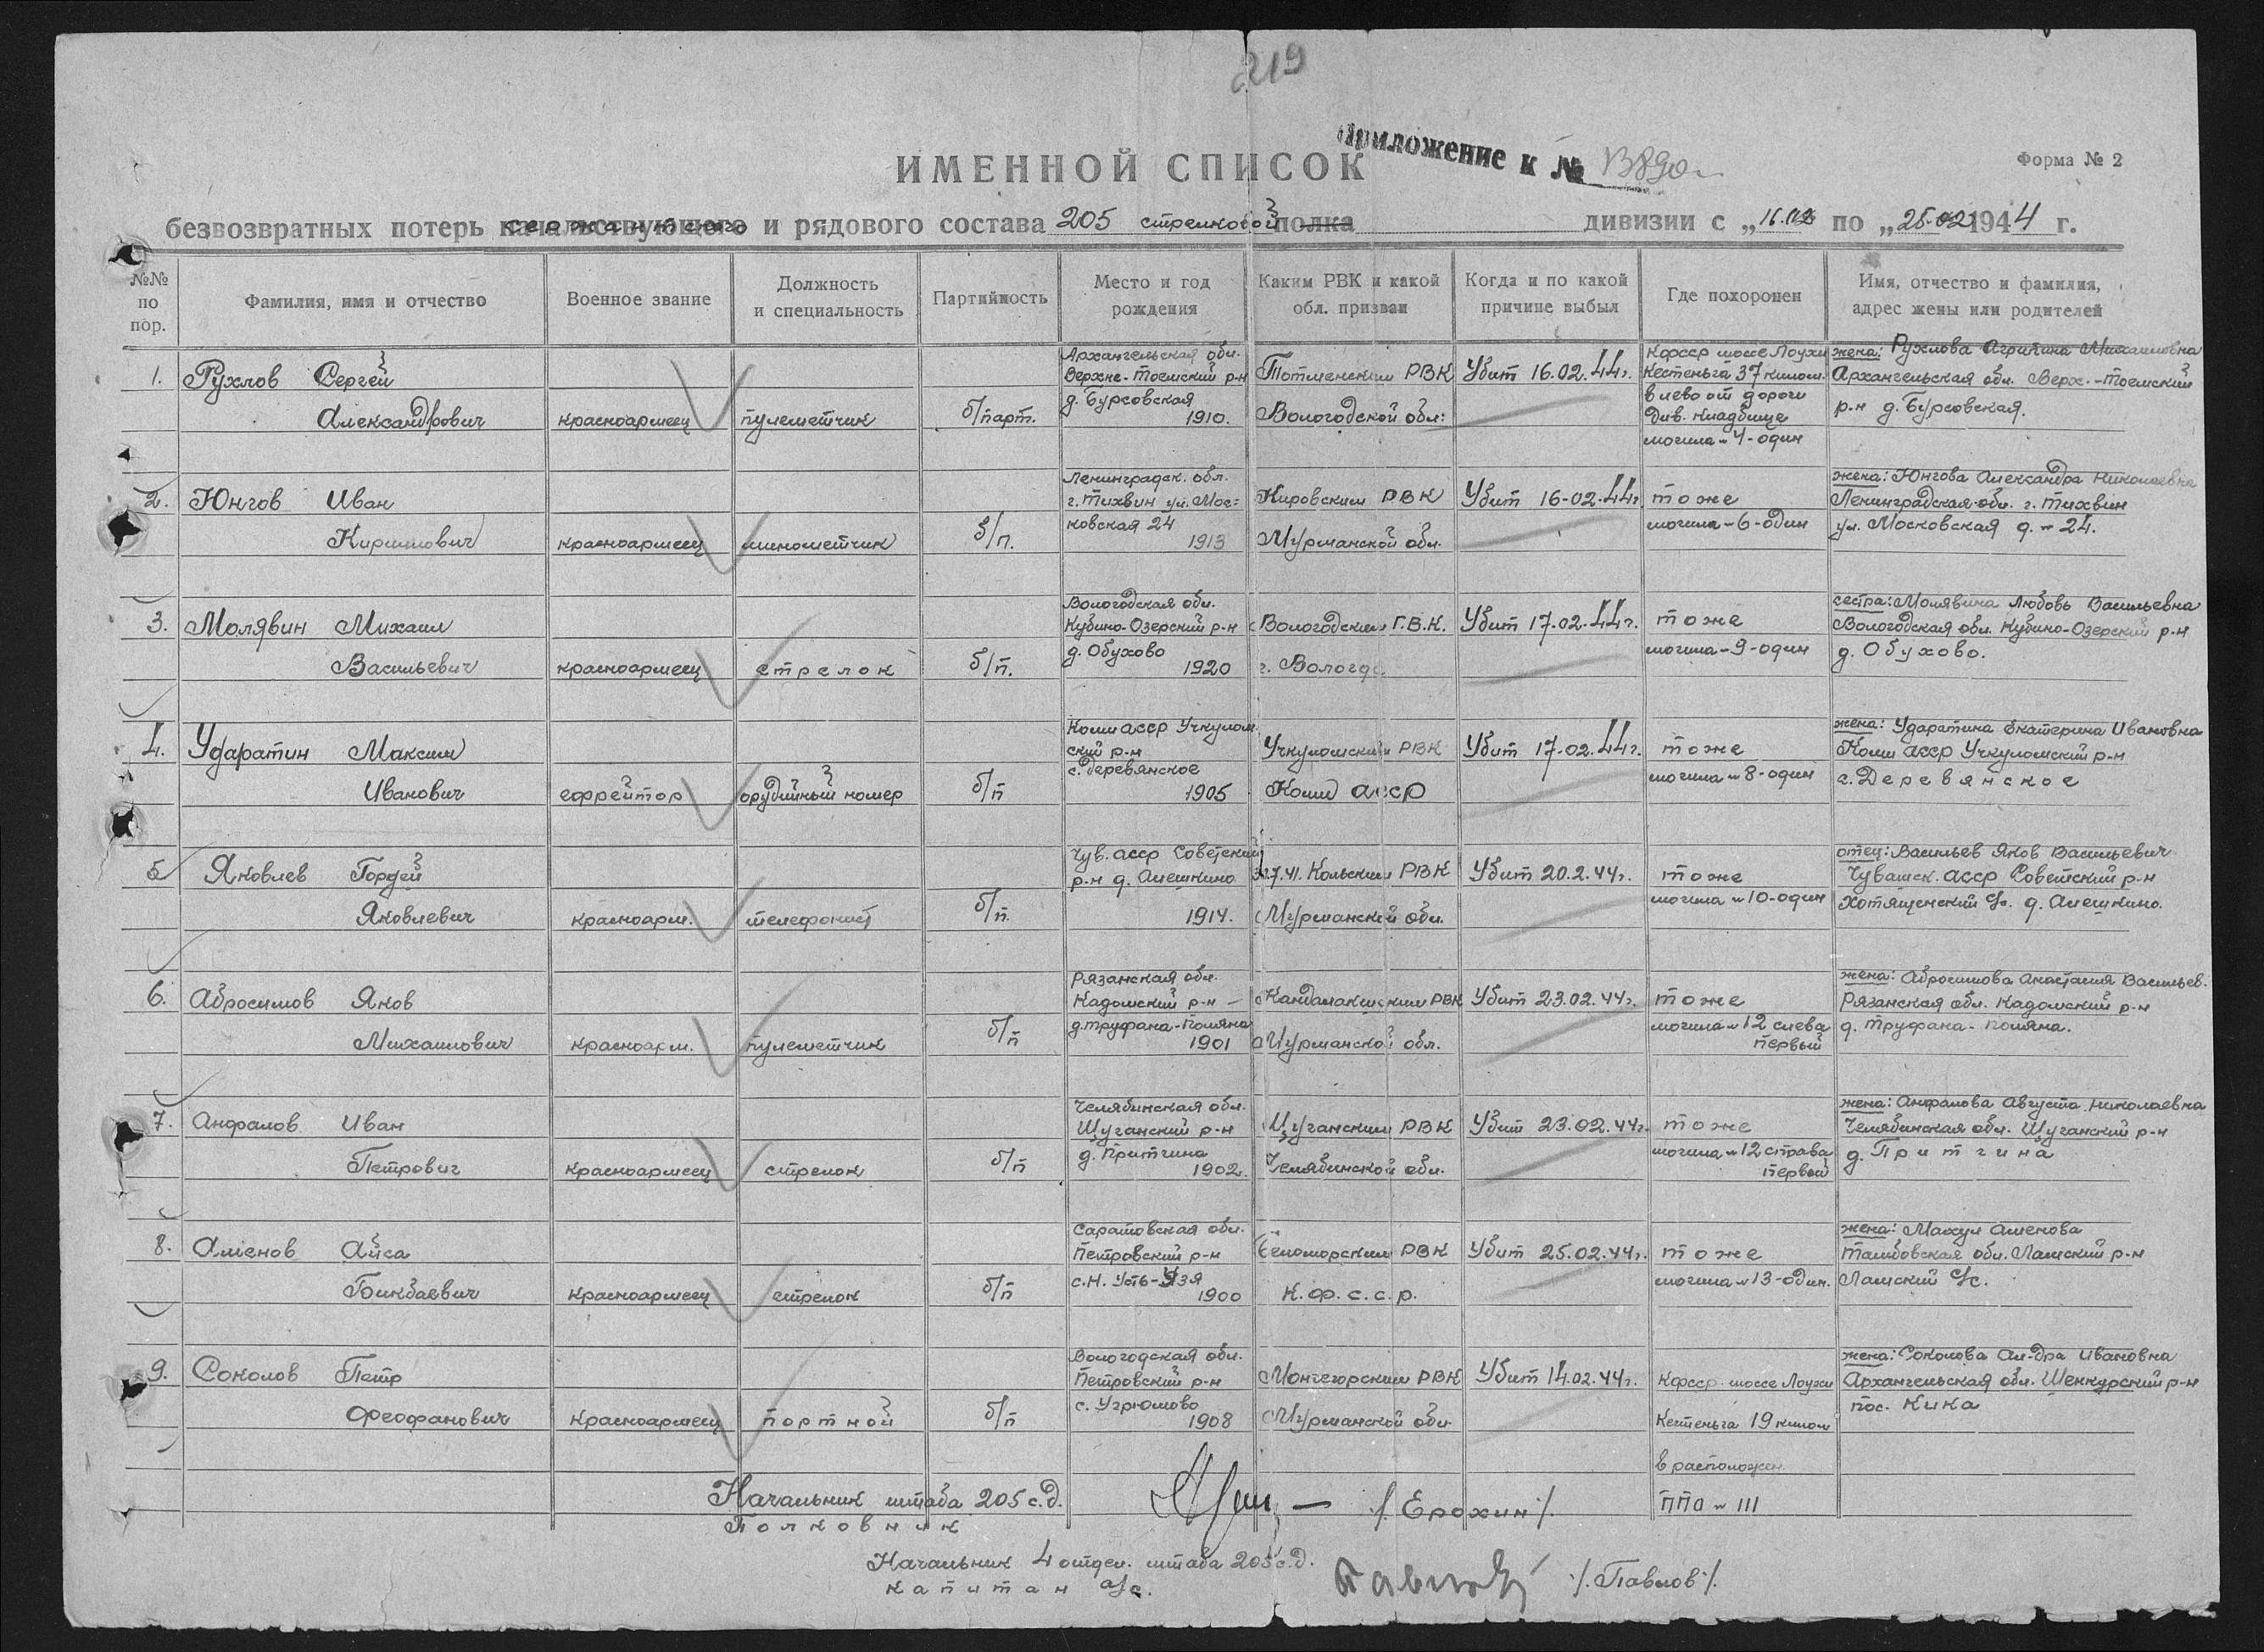 219
Приложение к №
ИМЕННОЙ СПИСОК
Форма № 2
безвозвратных потерь начальствующего и рядового состава 205 стрелковой полка дивизии с „16.02 по „25.02 1944 г.
сержантского
№№ по пор.
Фамилия, имя и отчество
Военное звание
Должность и специальность
Партийность
Место и год рождения
Каким РВК и какой обл. призван
Когда и по какой причине выбыл
Где похоронен
Имя, отчество и фамилия, адрес жены или родителей
1. Рухлов Сергей
Александрович
красноармеец
пулеметчик
б/парт.
Архангельская обл.
Верхне-Тоемский р-н
д. Бурсовская
1910.
Тотменским РВК
Вологодской обл.
Убит 16.02.44г.
Кфсср шоссе Лоухи
Кестеньга 37 килом.
влево от дороги
Див. кладбище
могила-4-один
жена: Рухлова Агрипина Михаиловна
Архангельская обл. Верх.-Тоемский
р-н д. Бурсовская.
2. Юнгов Иван
Кирилович
красноармеец
минометчик
б/п.
Ленинградск. обл.
г. Тихвин ул. Мос=
ковская 24
1913
Кировским РВК
Мурманской обл.
Убит 16-02-44г.
тоже
могила-6-один
жена: Юнгова Александра Николаевна
Ленинградская обл. г. Тихвин
ул. Московская д.-24.
3. Молявин Михаил
Васильевич
красноармеец
стрелок
б/п.
Вологодская обл.
Кубино-Озерский р-н
д. Обухово
1920
Вологодским Г.В.К.
г. Вологда
Убит 17.02.44г.
тоже
могила-9-один
сестра: Молявина Любовь Васильевна
Вологодская обл. Кубино-Озерский р-н
д. Обухово.
4. Ударатин Максим
Иванович
ефрейтор
орудийный номер
б/п
Коми асср Учкулом
ский р-н
с. Деревянское
1905
Учкуломским РВК
Коми асср
Убит 17-02.44г.
тоже
могила-8-один
жена: Ударатина Екатерина Ивановна
Коми асср Учкуломский р-н
с. Деревянское
5 Яковлев Гордей
Яковлевич
красноарм.
телефонист
б/п.
Чув. асср Советский
р-н д. Алешкино
1914.
7.41. Кольским РВК
Мурманской обл.
Убит 20.2.44г.
тоже
могила-10-один
отец: Васильев Яков Васильевич
Чувашск. асср Советский р-н
Хотященский с/с. д. Алешкино.
6. Абросимов Яков
Михаилович
красноарм.
пулеметчик
б/п
Рязанская обл.
Кадомский р-н -
д. Труфана-Поляна
1901
Кандалакшским РВК
Мурманской обл.
Убит 23.02.44г.
тоже
могила-12 слева
первый
жена: Абросимова Анастасия Васильев.
Рязанская обл. Кадомский р-н
д. Труфана-Поляна.
7. Анфалов Иван
Петрович
красноармеец
стрелок
б/п
Челябинская обл.
Щучанский р-н
д. Притчина
1902.
Щучанским РВК
Челябинской обл.
Убит 23.02.44г.
тоже
могила-12 справа
первый
жена: Анфалова Августа Николаевна
Челябинская обл. Щучанский р-н
д. Притчина
8. Аменов Айса
Бикбаевич
красноармеец
стрелок
б/п
Саратовская обл.
Петровский р-н
с.Н. Усть-Узя
1900
Беломорским РВК
К.Ф.С.С.Р.
Убит 25.02.44г.
тоже
могила-13-один.
жена: Махул Аменова
Тамбовская обл. Ламский р-н
Ламский с/с.
9. Соколов Петр
Феофанович
красноармеец
портной
б/п
Вологодская обл.
Петровский р-н
с. Угрюмово
1908
Мончегорским РВК
Мурманской обл.
Убит 14.02.44г.
Кфсср шоссе Лоухи
Кестеньга 19 килом
в располож.
ППО-111
жена: Соколова Ал-дра Ивановна
Архангельская обл. Шенкурский р-н
пос. Кика
Начальник штаба 205 с.д.
Полковник
/Ерохин/.
Начальник 4 отдел. штаба 205 с.д.
капитан а/с.
Павлов
/.Павлов/.